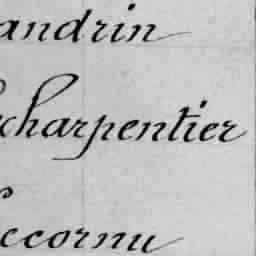 andrin
charpentier
ccornu